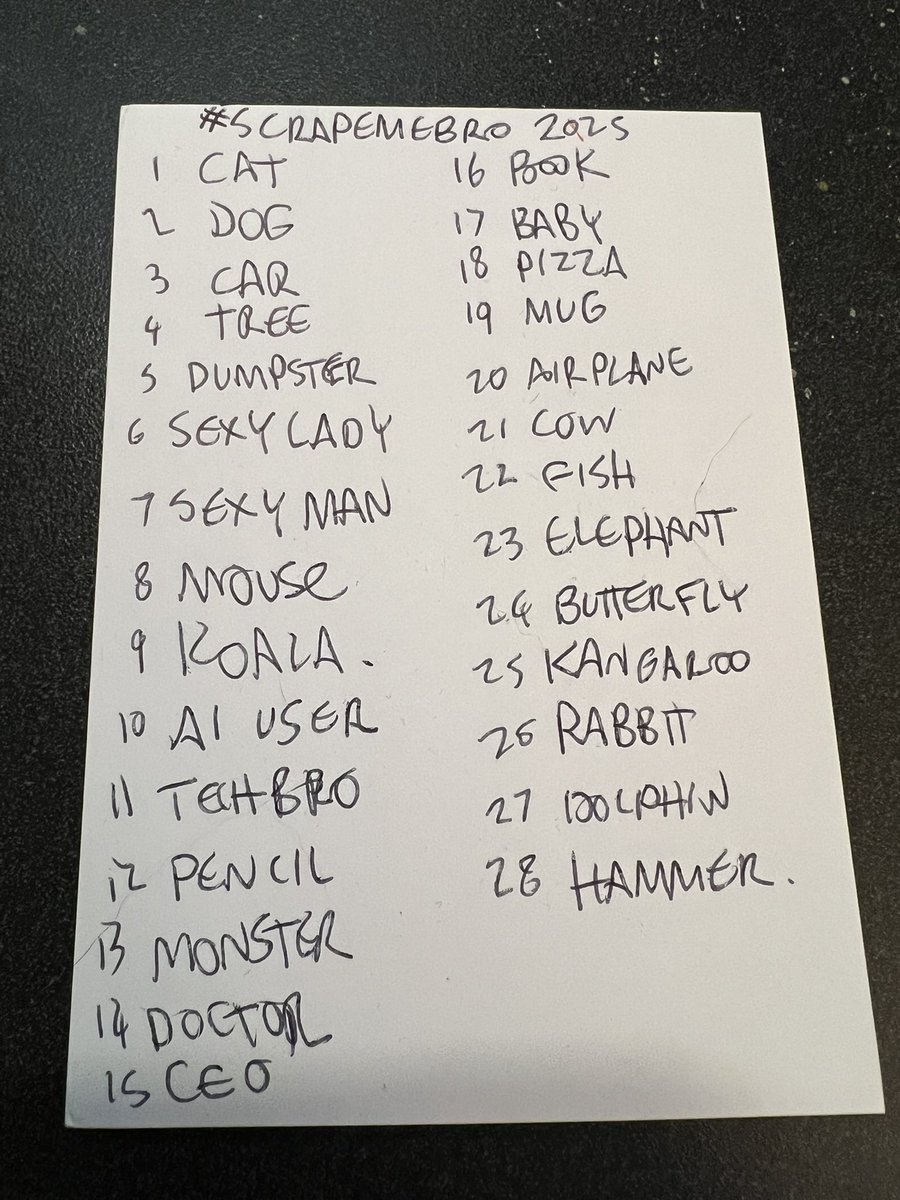 #SCRAPEMEBRO 2025
1 CAT
2 DOG
3 CAR
4 TREE
5 DUMPSTER
6 SEXY LADY
7 SEXY MAN
8 MOUSE
9 KOALA.
10 AI USER
11 TECHBRO
12 PENCIL
13 MONSTER
14 DOCTOR
15 CEO
16 BOOK
17 BABY
18 PIZZA
19 MUG
20 AIRPLANE
21 COW
22 FISH
23 ELEPHANT
24 BUTTERFLY
25 KANGAROO
26 RABBIT
27 DOLPHIN
28 HAMMER.